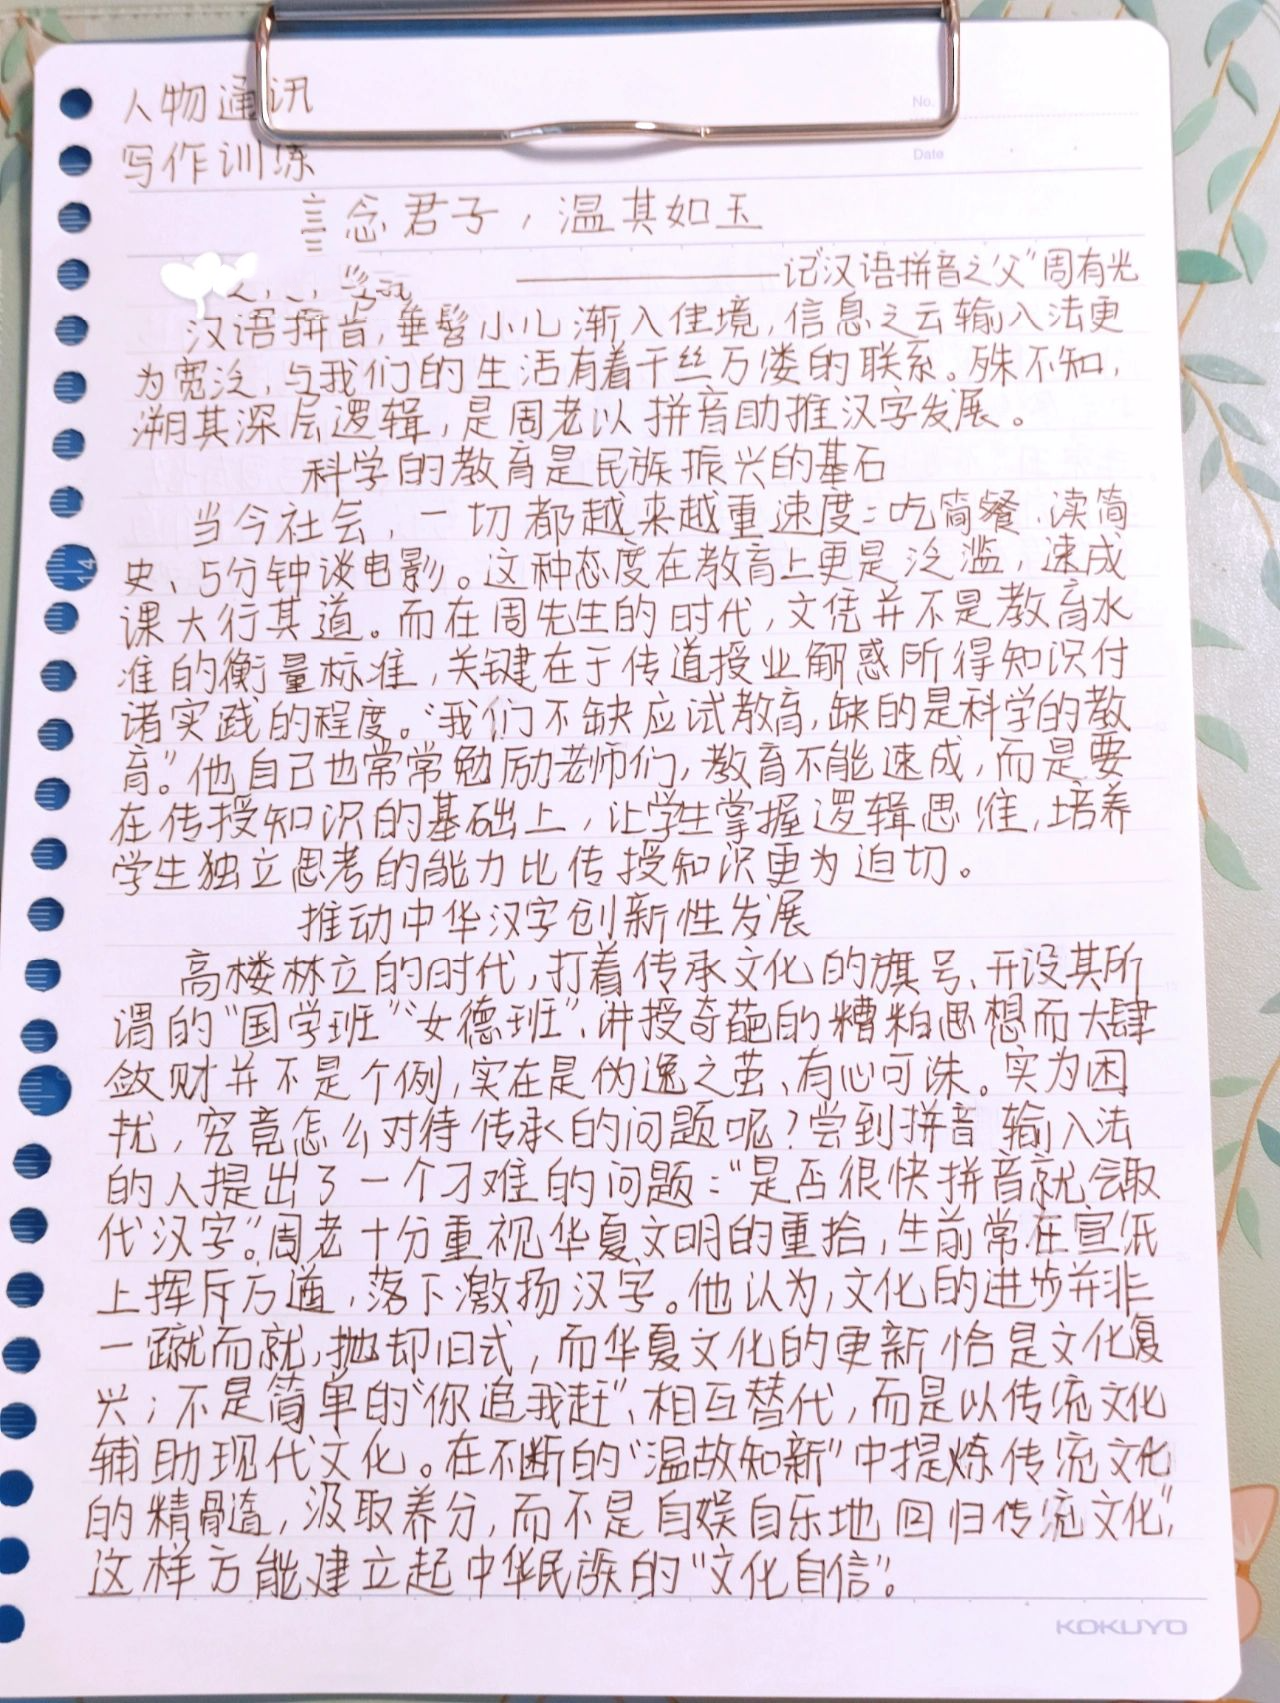 人物通讯
No.
写作训练
Date
言念君子，温其如玉
——记"汉语拼音之父"周有光
汉语拼音，垂髫小儿渐入佳境，信息之云输入法更
为宽泛，与我们的生活有着千丝万缕的联系。殊不知，
溯其深层逻辑，是周老以拼音助推汉字发展。
科学的教育是民族振兴的基石
当今社会，一切都越来越重速度：吃简餐、读简
史、5分钟谈电影。这种态度在教育上更是泛滥，速成
课大行其道。而在周先生的时代，文凭并不是教育水
准的衡量标准，关键在于传道授业解惑所得知识付
诸实践的程度。"我们不缺应试教育，缺的是科学的教
育"。他自己也常常勉励老师们，教育不能速成，而是要
在传授知识的基础上，让学生掌握逻辑思维，培养
学生独立思考的能力比传授知识更为迫切。
推动中华汉字创新性发展
高楼林立的时代，打着传承文化的旗号、开设其所
谓的"国学班""女德班"、讲授奇葩的糟粕思想而大肆
敛财并不是个例，实在是伪逸之茧、有心可诛。实为困
扰，究竟怎么对待传承的问题呢？尝到拼音输入法
的人提出了一个刁难的问题："是否很快拼音就会取
代汉字"。周老十分重视华夏文明的重拾，生前常在宣纸
上挥斥方遒，落下激扬汉字。他认为，文化的进步并非
一蹴而就，抛却旧式，而华夏文化的更新恰是文化复
兴；不是简单的"你追我赶"、相互替代，而是以传统文化
辅助现代文化。在不断的"温故知新"中提炼传统文化
的精髓，汲取养分，而不是自娱自乐地回归传统文化"，
这样方能建立起中华民族的"文化自信"。
KOKUYO